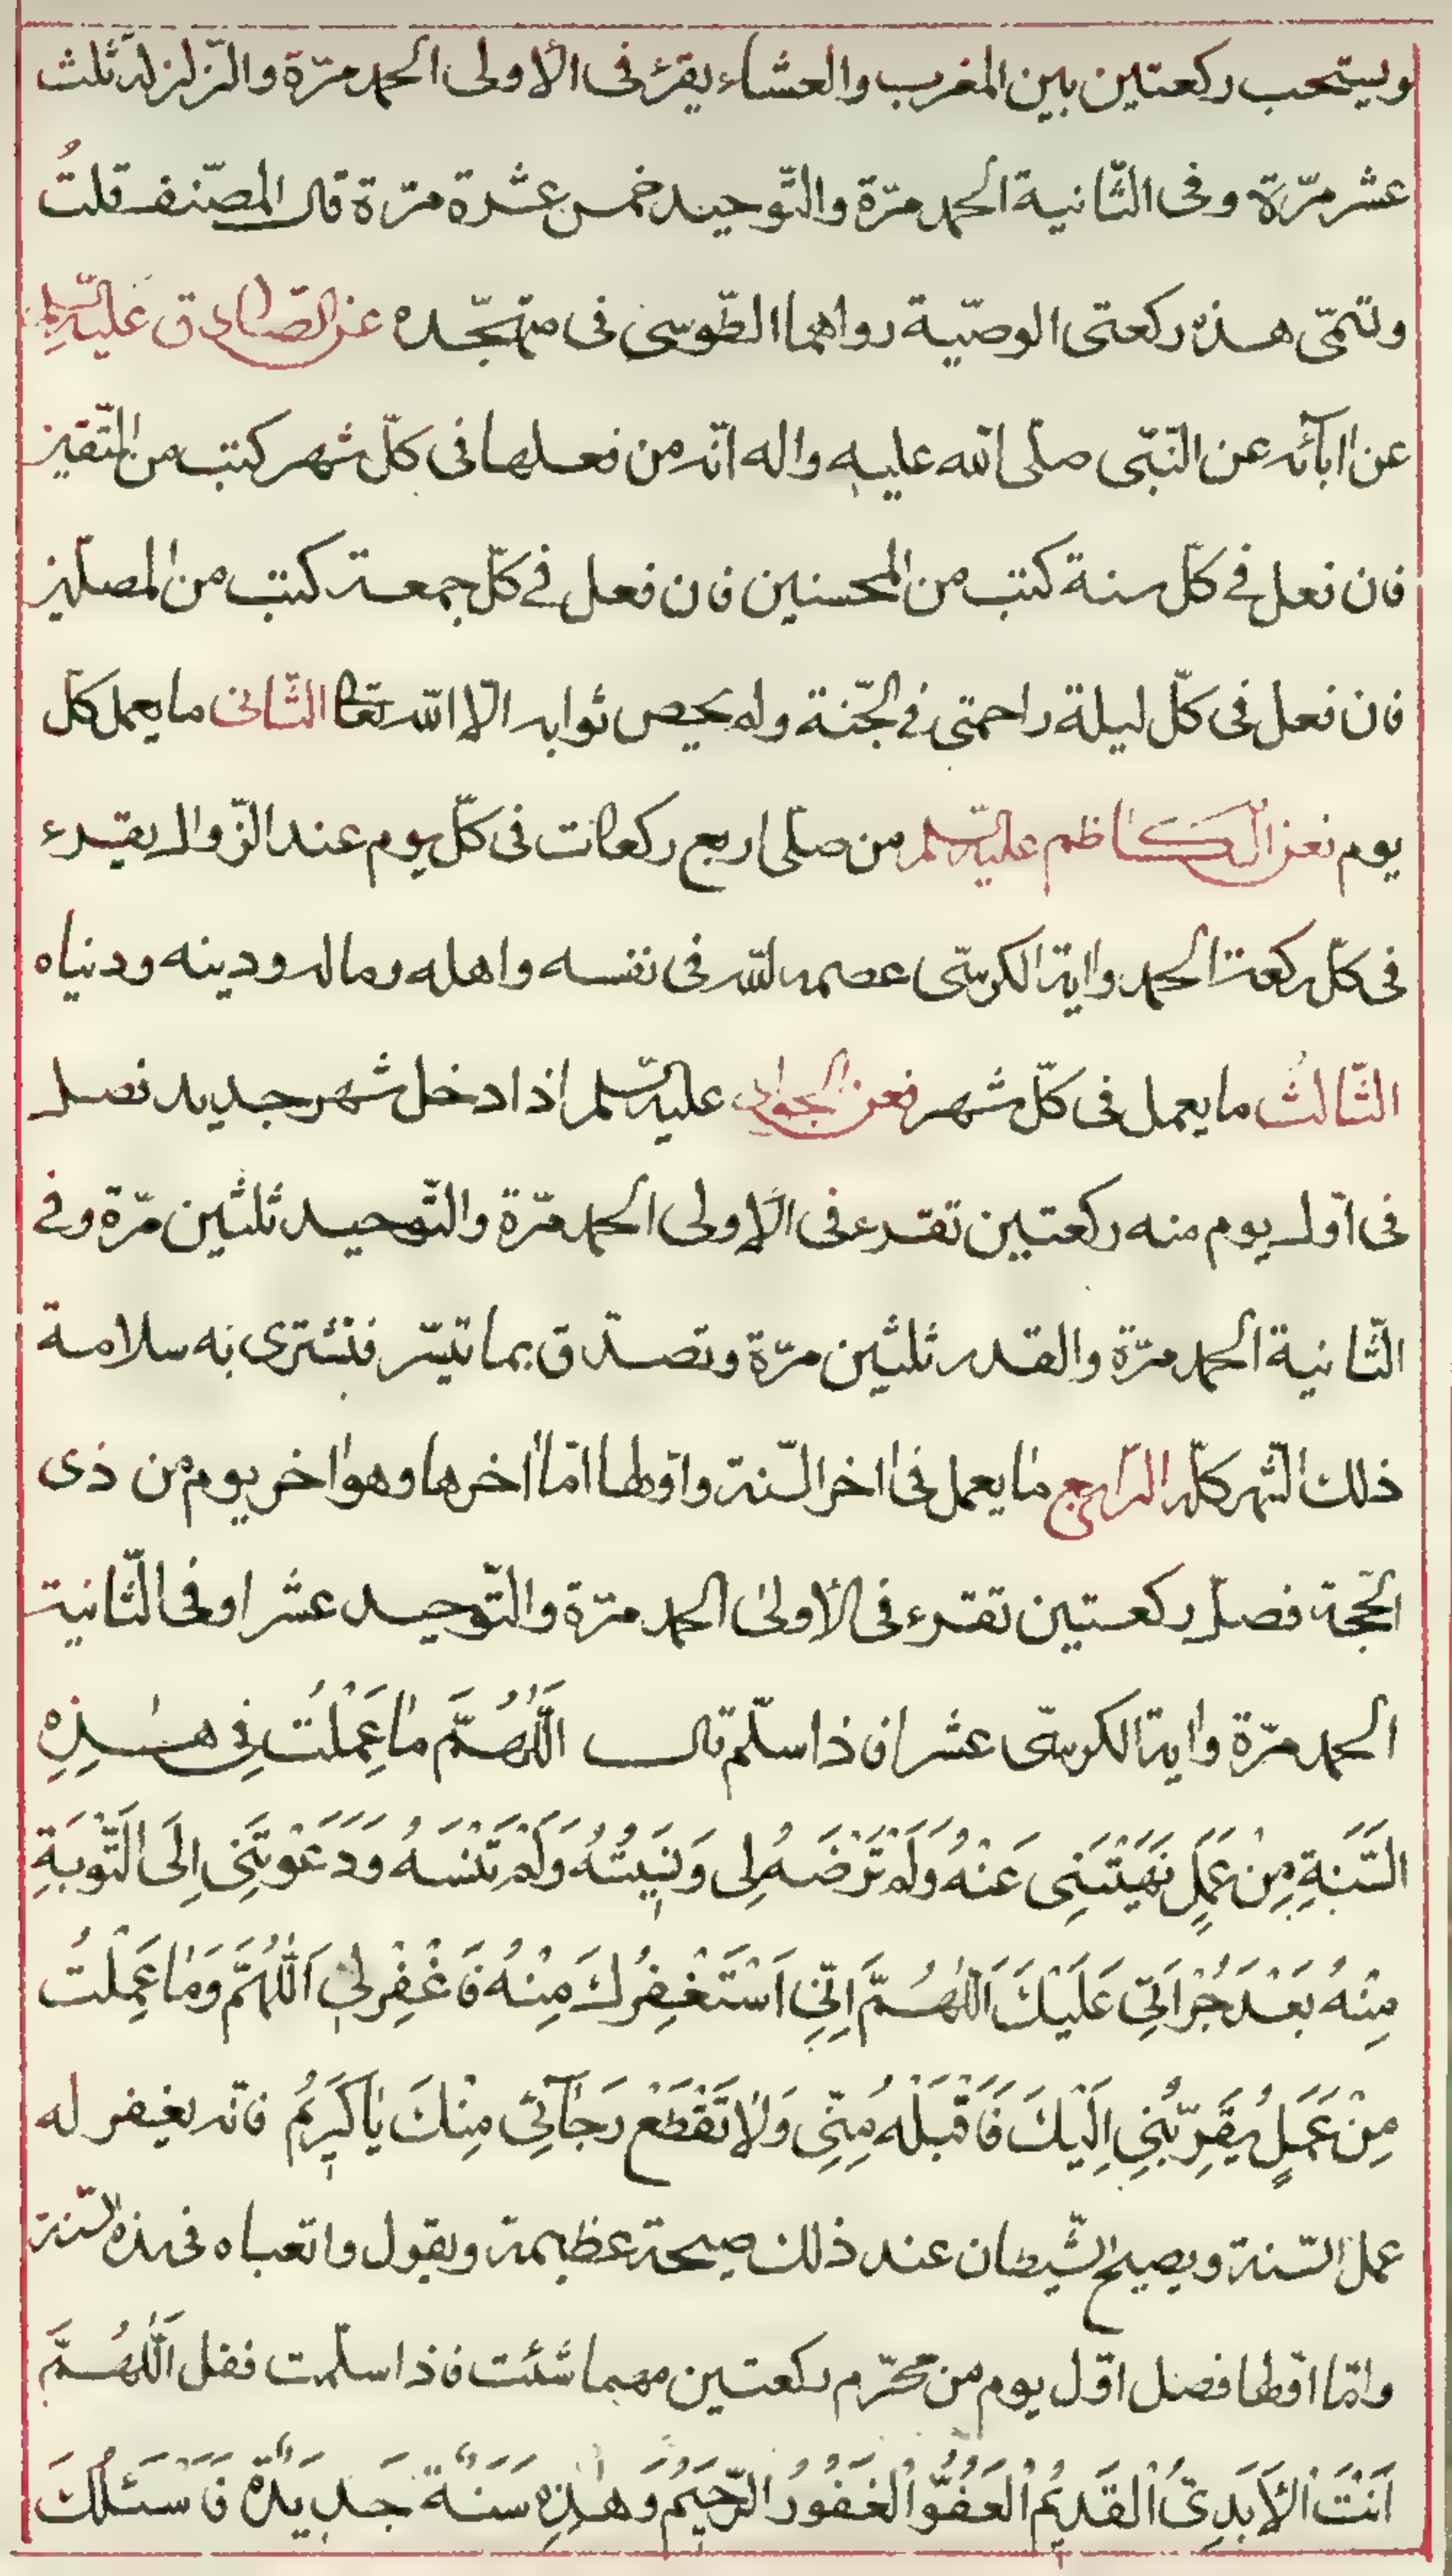 ويستحب ركعتين بين المغرب والعشاء يقرء فى الاولى الحمد مرّة والزّلزلة ثلث
عشر مرّة وفى الثّانية الحمد مرّة والتّوحيد خمس عشرة مرّة قال المصنّف قلتُ
وتسمّى هذه ركعتى الوصيّة رواهما الطّوسى فى متهجّده عن الصّادق عليه السّلم
عن ابآئه عن النّبى صلى الله عليه واله انّه من فعلها فى كلّ شهر كتب من المتّقين
فان فعل فى كلّ سنة كتب من المحسنين فان فعل فى كلّ جمعة كتب من المصلّين
فان فعل فى كلّ ليلة زاحمتى فى الجّنة ولم يحص ثوابه الّا الله تعا الثّانى ما يعمل كلّ
يوم فعن الكاظم عليه السّلم من صلّى اربع ركعات فى كلّ يوم عند الزّوال يقرء
فى كلّ ركعة الحمد واية الكرسّى عصمه الله فى نفسه واهله وماله ودينه ودنياه
الثّالثُ ما يعمل فى كلّ شهر فعن الجواد عليه السّلم اذا دخل شهر جديد فصل
فى اوّل يوم منه ركعتين تقرء فى الاولى الحمد مرّة والتّوحيد ثلثين مرّة وفى
الثّانية الحمد مرّة والقدر ثلثين مرّة وتصدّق بما تيسّر فتشترى به سلامة
ذلك الشّهر كلّه الرّابع ما يعمل فى اخر السّنة واوّلها امّا اخرها وهو اخر يوم من ذى
الحّجة فصلّ ركعتين تقرء فى الاولى الحمد مرّة والتّوحيد عشرا وفى الثّانية
الحمد مرّة واية الكرسّى عشرا فاذا سلّم قال اَللّهُمَّ مٰا عَمِلْتُ فِى هٰذِهِ
السَّنَةِ مِنْ عَمَلٍ نَهَيْتَنِى عَنْهُ وَلَمْ تَرْضَهُ لِى وَنَسِيتُهُ وَلَمْ تَنْسَهُ وَدَعَوْتَنِى اِلَى التَّوْبَةِ
مِنْهُ بَعْدَ جُرْاَتِى عَلَيْكَ اَللّٰهُمَّ اِنّى اَسْتَغْفِرُكَ مِنْهُ فَاغْفِرْ لِى اَللّٰهُمَّ وَمٰا عَمِلْتُ
مِنْ عَمَلٍ يُقَرِّبُنِى اِلَيْكَ فَاقْبَلْهُ مِنّى وَلاٰ تَقْطَعْ رَجآئِى مِنْكَ يٰا كَرِيْمُ فانّه يغفر له
عمل السّنة ويصيح الشّيطان عند ذلك صيحة عظيمة ويقول واتعباه فى هذه السّنة
وامّا اوّلها فصل اوّل يوم من محرّم ركعتين مهما شئت فاذا سلّمت فقل اَللّٰهُمَّ
اَنْتَ الْاَبَدِىُّ الْقَدِيْمُ الْعَفُوُّ الْغَفُورُ الرَّحِيْمُ وَهٰذِهِ سَنَةٌ جَدِيدَةٌ فَاَسْئَلُكَ